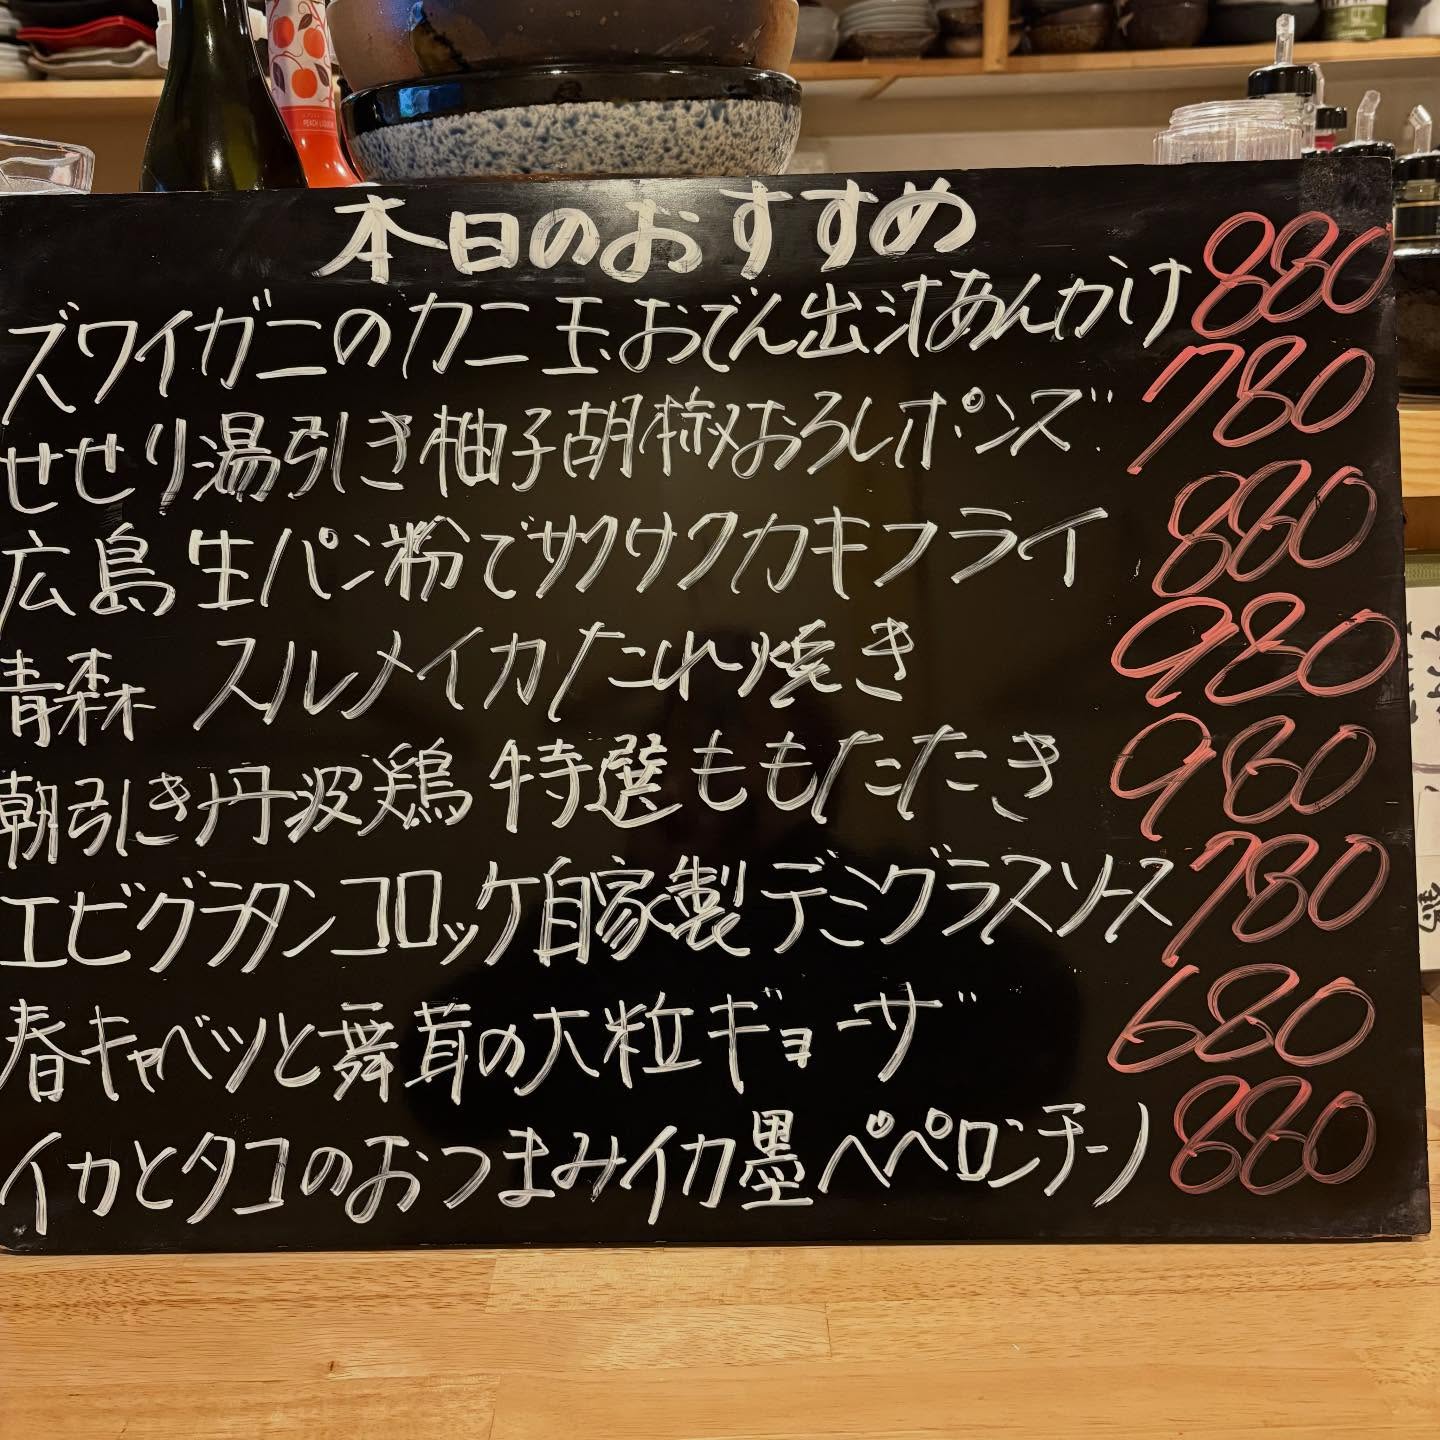 PEACH LIQUEUR
本日のおすすめ
ズワイガニのカニ玉おでん出汁あんかけ 880
せせり湯引き柚子胡椒おろしポンズ 780
広島 生パン粉でサクサクカキフライ 880
青森 スルメイカたれ焼き 980
朝引き丹波鶏 特選ももたたき 980
エビグラタンコロッケ自家製デミグラスソース 780
春キャベツと舞茸の大粒ギョーザ 680
イカとタコのおつまみイカ墨ペペロンチーノ 880